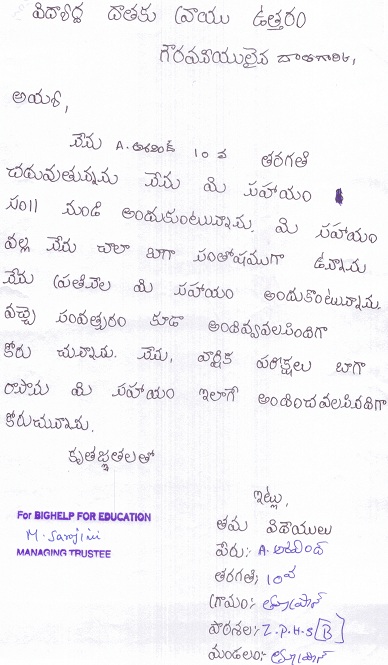 విద్యార్థి దాతకు వ్రాయు ఉత్తరం
గౌరవనీయులైన దాతగారికి,
అయ్యా,
నేను A. అరవింద్ 10 వ తరగతి
చదువుతున్నాను నేను మీ సహాయం
సం॥ నుండి అందుకుంటున్నాను. మీ సహాయం
వల్ల నేను చాలా బాగా సంతోషముగా ఉన్నాను
నేను ప్రతినెల మీ సహాయం అందుకొంటున్నాను.
వచ్చే సంవత్సరం కూడా అందివ్వవలసిందిగా
కోరు చున్నాను. నేను, వార్షిక పరీక్షలు బాగా
రాసాను మీ సహాయం ఇలాగే అందించవలసినదిగా
కోరుచున్నాను.
కృతజ్ఞతలతో
ఇట్లు,
తమ విధేయులు
పేరు:- A. అరవింద్
తరగతి; 10 వ
గ్రామం:-
పాఠశాల:- Z.P.H.S (B)
మండలం:-
For BIGHELP FOR EDUCATION
M. Sarojini
MANAGING TRUSTEE